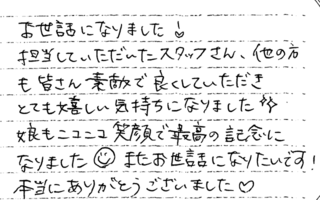 お世話になりました!
担当していただいたスタッフさん、他の方
も皆さん素敵で良くしていただき
とても嬉しい気持ちになりました♪♪
娘もニコニコ笑顔で最高の記念に
なりました☺ またお世話になりたいです!
本当にありがとうございました♡